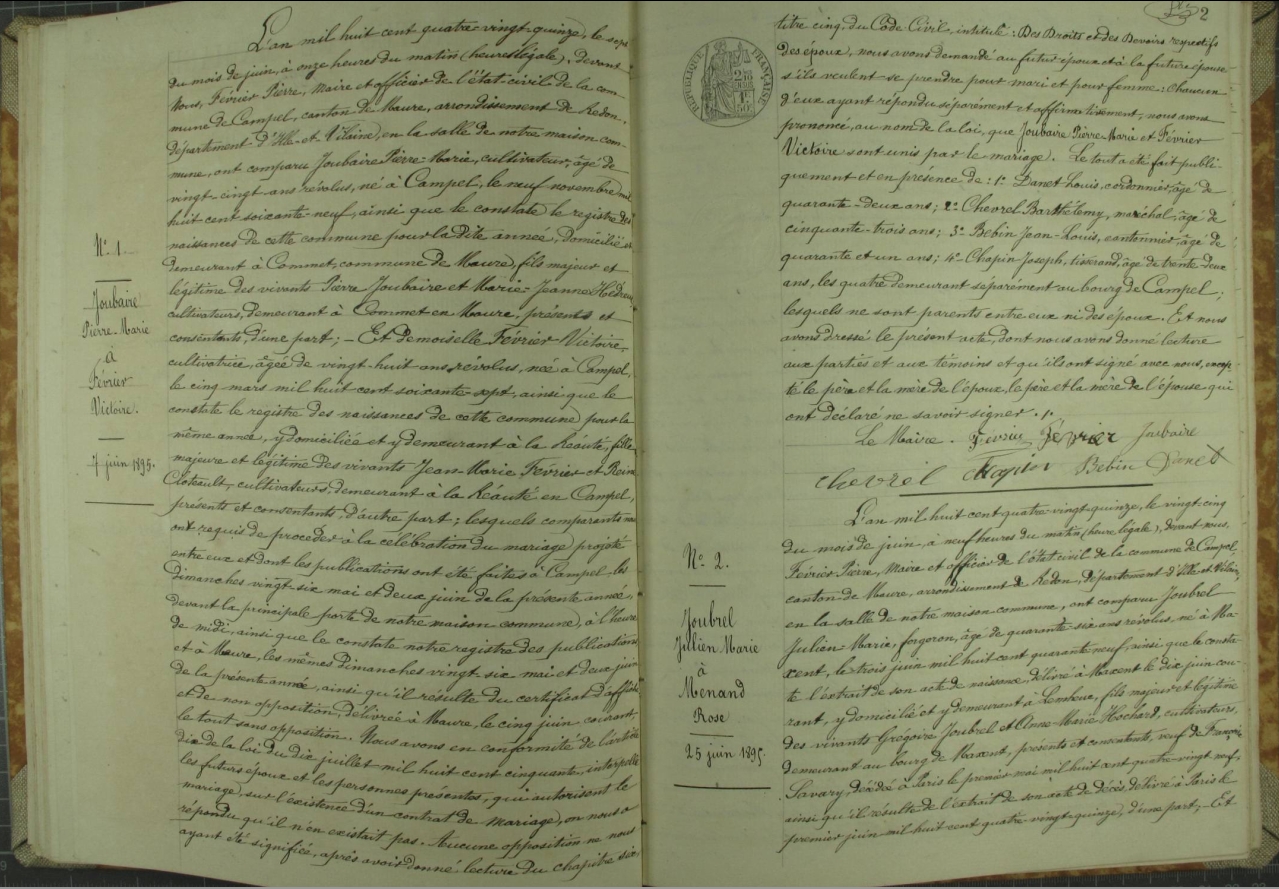 L'an mil huit cent quatre-vingt-quinze, le sept
du mois de juin, à onze heures du matin (heure légale), devant
nous, Février Pierre, Maire et officier de l'état-civil de la com-
mune de Campel, canton de Maure, arrondissement de Redon,
département d'Ille-et-Vilaine, en la salle de notre maison com-
mune, ont comparu Joubaire Pierre-Marie, cultivateur, âgé de
vingt-cinq ans révolus, né à Campel, le neuf novembre mil
huit cent soixante-neuf, ainsi que le constate le registre des
naissances de cette commune pour la dite année, domicilié et
demeurant à Commet, commune de Maure, fils majeur et
légitime des vivants Pierre Joubaire et Marie-Jeanne
cultivateurs, demeurant à Commet en Maure, présents et
consentants, d'une part; – Et demoiselle Février Victoire,
cultivatrice, âgée de vingt-huit ans révolus, née à Campel,
le cinq mars mil huit cent soixante-sept, ainsi que le
constate le registre des naissances de cette commune pour la
même année, y domiciliée et y demeurant à la Réauté, fille
majeure et légitime des vivants Jean Marie Février et Reine
Cloteault, cultivateurs, demeurant à la Réauté en Campel,
présents et consentants, d'autre part; lesquels comparants nous
ont requis de procéder à la célébration du mariage projeté
entre eux et dont les publications ont été faites à Campel, les
dimanches vingt-six mai et deux juin de la présente année,
devant la principale porte de notre maison commune, à l'heure
de midi, ainsi que le constate notre registre des publications
et à Maure, les mêmes dimanches vingt six mai et deux juin
de la présente année, ainsi qu'il résulte du certificat d'affiche
et de non opposition, délivrée à Maure, le cinq juin courant,
le tout sans opposition. Nous avons en conformité de l'article
dix de la loi du dix juillet mil huit cent cinquante, interpellé
les futurs époux et les personnes présentes, qui autorisent le
mariage, sur l'existence d'un contrat de mariage, on nous a
répondu qu'il n'en existait pas. Aucune opposition ne nous
ayant été signifiée, après avoir donné lecture du chapitre six,
N° 1
Joubaire
Pierre-Marie
à
Février
Victoire.
7 juin 1895.
2
titre cinq, du Code Civil, intitulé: Des Droits et des Devoirs respectifs
des époux, nous avons demandé au futur époux et à la future épouse
s'ils veulent se prendre pour mari et pour femme: chacun
d'eux ayant répondu séparément et affirmativement, nous avons
prononcé, au nom de la loi, que Joubaire Pierre-Marie et Février
Victoire sont unis par le mariage. Le tout a été fait publi-
quement et en présence de: 1° Danet Louis, cordonnier, âgé de
quarante-deux ans; 2° Chevrel Barthélemy, maréchal, âgé de
cinquante-trois ans; 3° Bebin Jean-Louis, cantonnier, âgé de
quarante et un ans; 4° Chapin Joseph, tisserand, âgé de trente-deux
ans, les quatre demeurant séparément au bourg de Campel;
lesquels ne sont parents entre eux ni des époux. Et nous
avons dressé le présent acte, dont nous avons donné lecture
aux parties et aux témoins et qu'ils ont signé avec nous, excep-
té le père et la mère de l'époux, le père et la mère de l'épouse qui
ont déclaré ne savoir signer.
Le Maire. Février Février Joubaire
Chevrel Chapin Bebin Danet
RÉPUBLIQUE FRANÇAISE
N° 2.
Joubrel
Julien Marie
à
Menand
Rose
25 juin 1895.
L'an mil huit cent quatre-vingt quinze, le vingt-cinq
du mois de juin, à neuf heures du matin (heure légale), devant nous,
Février Pierre, Maire et officier de l'état civil de la commune de Campel,
canton de Maure, arrondissement de Redon, département d'Ille et Vilaine,
en la salle de notre maison commune, ont comparu Joubrel
Julien-Marie, forgeron, âgé de quarante-six ans révolus, né à Ma-
xent, le trois juin mil huit cent quarante neuf, ainsi que le consta-
te l'extrait de son acte de naissance délivré à Maxent le dix juin cou-
rant, y domicilié et y demeurant à fils majeur et légitime
des vivants Gregoire Joubrel et Anne-Marie Hochard, cultivateurs,
demeurant au bourg de Maxent, présents et consentants, veuf de François
Savary, décédée à Paris le premier mai mil huit cent quatre vingt neuf,
ainsi qu'il résulte de l'extrait de son acte de décès délivré à Paris le
premier juin mil huit cent quatre vingt-quinze, d'une part; Et